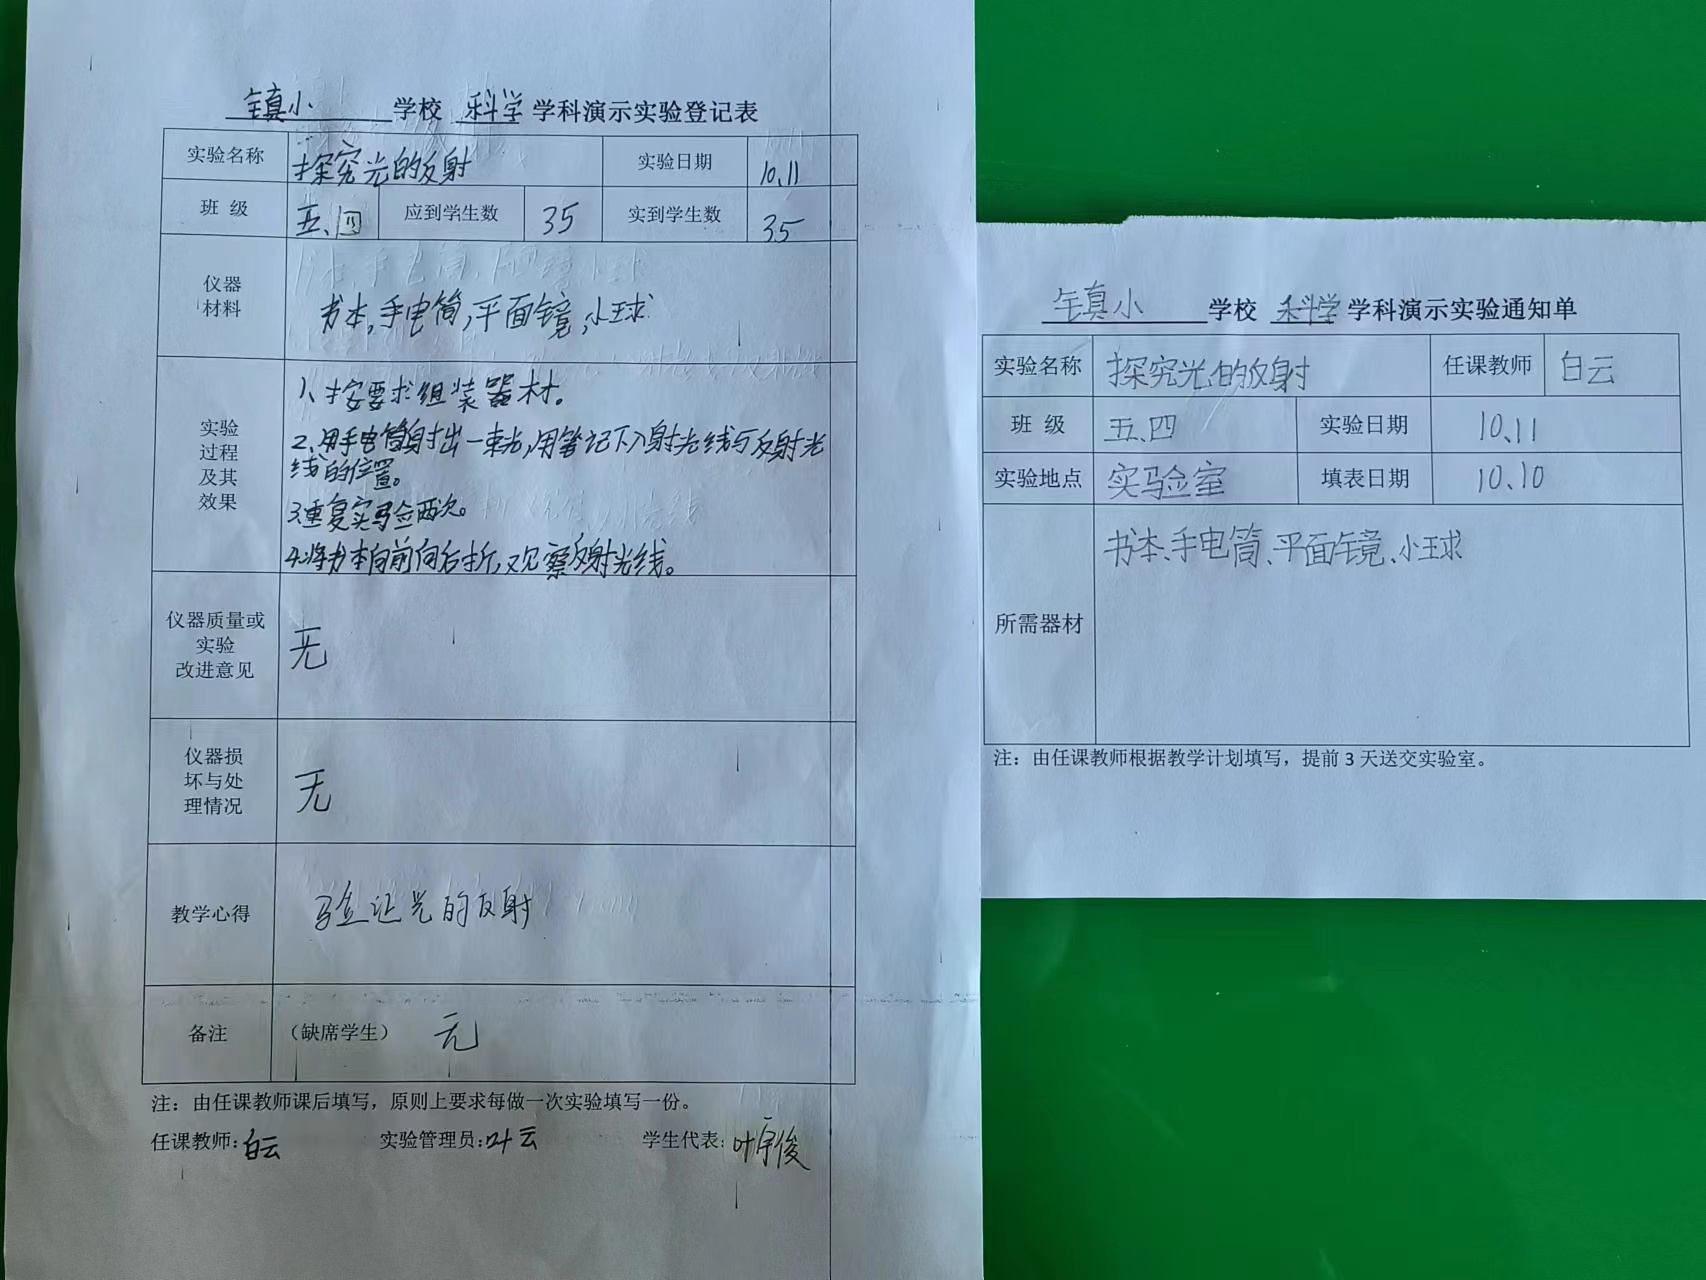 镇小 学校 科学 学科演示实验登记表
实验名称 探究光的反射 实验日期 10.11
班 级 五.四 应到学生数 35 实到学生数 35
仪器
材料
书本,手电筒,平面镜,小球
实验
过程
及其
效果
1、按要求组装器材。
2、用手电筒射出一束光,用笔记下入射光线与反射光
线的位置。
3.重复实验两次。
4.将书本向前向后折,观察反射光线。
仪器质量或
实验
改进意见
无
仪器损
坏与处
理情况
无
教学心得 验证光的反射
备注 (缺席学生) 无
注：由任课教师课后填写，原则上要求每做一次实验填写一份。
任课教师:白云 实验管理员:叶云 学生代表:叶宇俊
镇小 学校 科学 学科演示实验通知单
实验名称 探究光的反射 任课教师 白云
班 级 五.四 实验日期 10.11
实验地点 实验室 填表日期 10.10
所需器材
书本、手电筒、平面镜、小球
注：由任课教师根据教学计划填写，提前 3 天送交实验室。